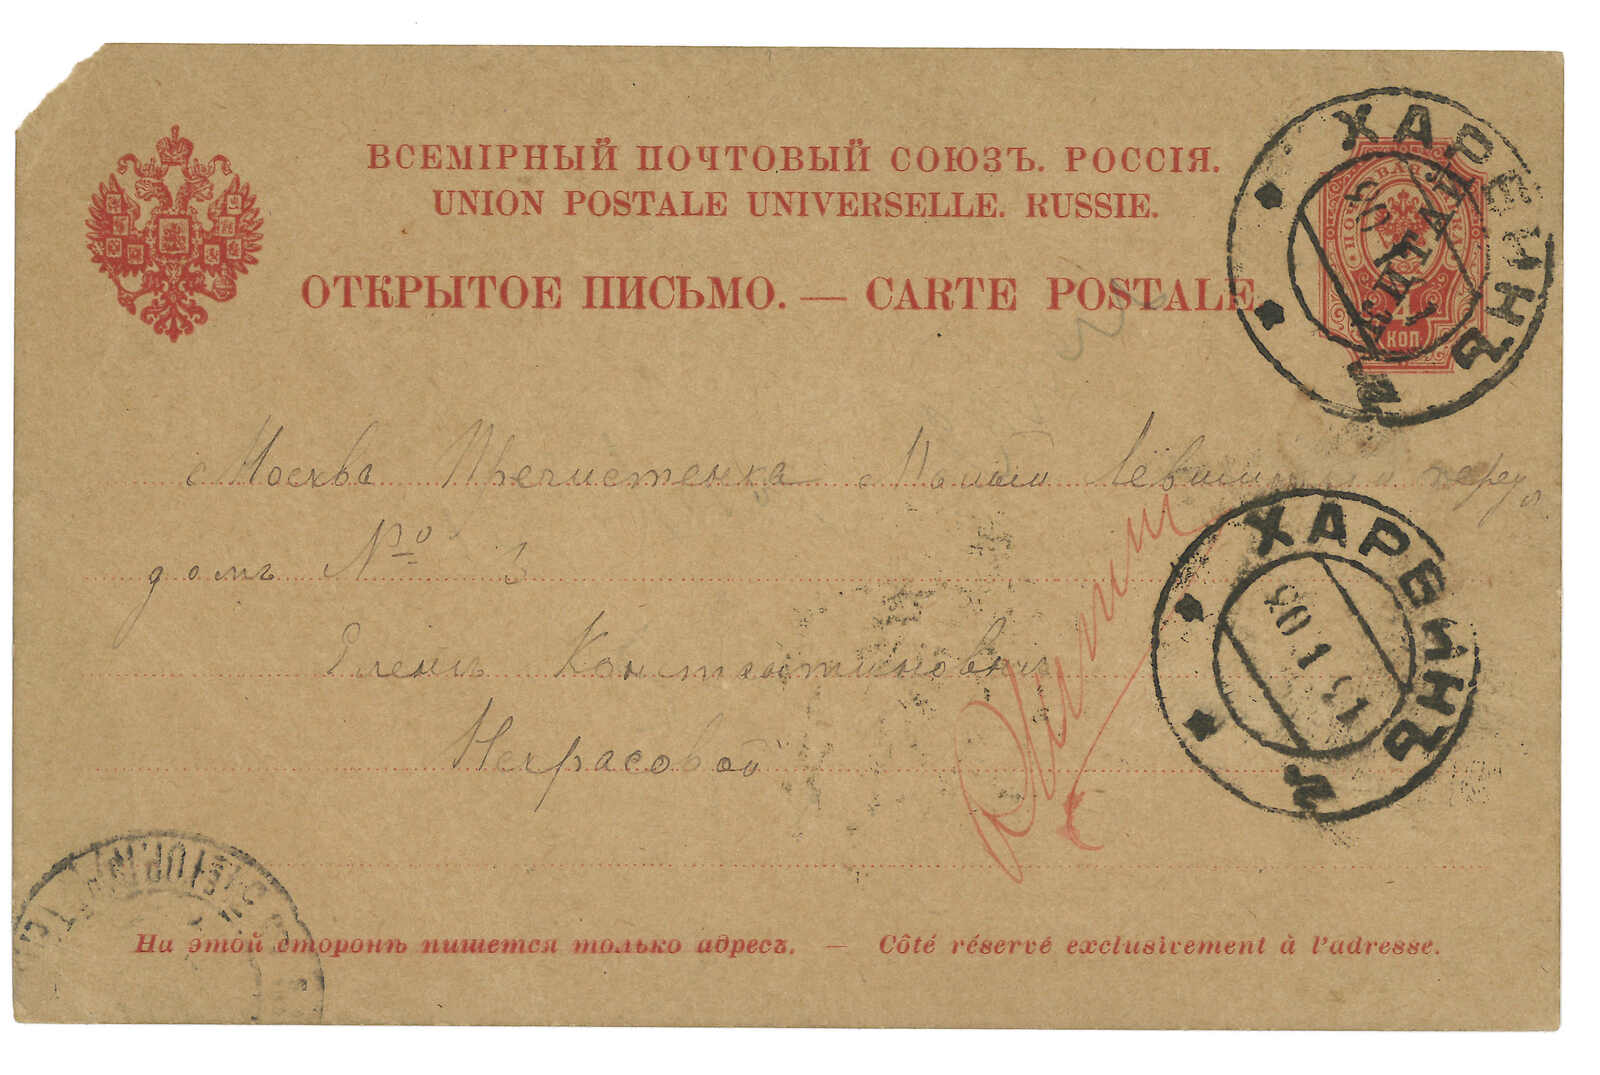 ВСЕМІРНЫЙ ПОЧТОВЫЙ СОЮЗЪ. РОССІЯ.
UNION POSTALE UNIVERSELLE. RUSSIE.
ОТКРЫТОЕ ПИСЬМО. — CARTE POSTALE.
ХАРБИНЪ
КИТАЙ
4
КОП
Москва Пречистенка Малый Лёвшинскій перед.
домъ № 3
ХАРБИНЪ
13 1 03
Еленѣ Константиновнѣ
Некрасовой
На этой сторонѣ пишется только адресъ. — Côté réservé exclusivement à l'adresse.